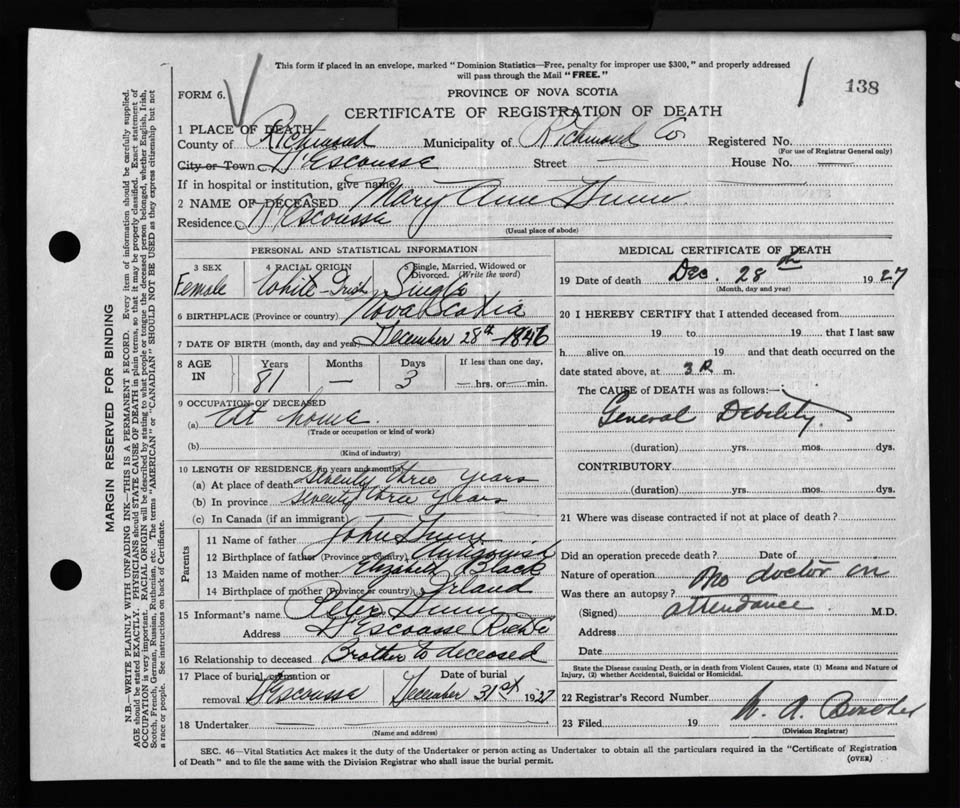 This form if placed in an envelope, marked "Dominion Statistics—Free, penalty for improper use $300," and properly addressed
will pass through the Mail "FREE."
138
FORM 6.
PROVINCE OF NOVA SCOTIA
CERTIFICATE OF REGISTRATION OF DEATH
1 PLACE OF DEATH
County of Richmond Municipality of Richmond Co. Registered No.
(For use of Registrar General only)
City or Town D'Escousse Street — House No. —
If in hospital or institution, give name
2 NAME OF DECEASED Mary Ann
Residence D'Escousse
(Usual place of abode)
MARGIN RESERVED FOR BINDING
N.B.—WRITE PLAINLY WITH UNFADING INK—THIS IS A PERMANENT RECORD. Every item of information should be carefully supplied.
AGE should be stated EXACTLY. PHYSICIANS should STATE CAUSE OF DEATH in plain terms, so that it may be properly classified. Exact statement of
OCCUPATION is very important. RACIAL ORIGIN will be described by stating to what people or tongue the deceased person belonged, whether English, Irish,
Scotch, French, German, Russian, Ruthenian, etc. The terms "AMERICAN" or "CANADIAN" SHOULD NOT BE USED as they express citizenship but not
a race or people. See instructions on back of Certificate.
PERSONAL AND STATISTICAL INFORMATION
3 SEX
Female
4 RACIAL ORIGIN
White-Irish
Single, Married, Widowed or
Divorced. (Write the word)
Single
6 BIRTHPLACE (Province or country) Nova Scotia
7 DATE OF BIRTH (month, day and year) December 28th 1846
8 AGE IN
Years Months Days If less than one day,
81 — 3 — hrs. or — min.
9 OCCUPATION OF DECEASED
(a) At home
(Trade or occupation or kind of work)
(b)
(Kind of industry)
10 LENGTH OF RESIDENCE (in years and months)
(a) At place of death seventy three years
(b) In province seventy three years
(c) In Canada (if an immigrant)
Parents
11 Name of father John
12 Birthplace of father (Province or country) Antigonish
13 Maiden name of mother Elizabeth Black
14 Birthplace of mother (Province or country) Irland
15 Informant's name Peter
Address D'Escousse
16 Relationship to deceased Brother to deceased
17 Place of burial, cremation or Date of burial
removal D'Escousse December 31st 1927
18 Undertaker
(Name and address)
MEDICAL CERTIFICATE OF DEATH
19 Date of death Dec. 28th 1927
(Month, day and year)
20 I HEREBY CERTIFY that I attended deceased from
19 to 19 that I last saw
h alive on 19 and that death occurred on the
date stated above, at 3 m.
The CAUSE of DEATH was as follows:—
General Debility
(duration) yrs. mos. dys.
CONTRIBUTORY
(duration) yrs. mos. dys.
21 Where was disease contracted if not at place of death?
Did an operation precede death? Date of
Nature of operation no doctor in
Was there an autopsy?
(Signed) attendance M.D.
Address
Date
State the Disease causing Death, or in death from Violent Causes, state (1) Means and Nature of
Injury, (2) whether Accidental, Suicidal or Homicidal.
22 Registrar's Record Number
23 Filed 19 W. A.
(Division Registrar)
SEC. 46—Vital Statistics Act makes it the duty of the Undertaker or person acting as Undertaker to obtain all the particulars required in the "Certificate of Registration
of Death" and to file the same with the Division Registrar who shall issue the burial permit.
(OVER)